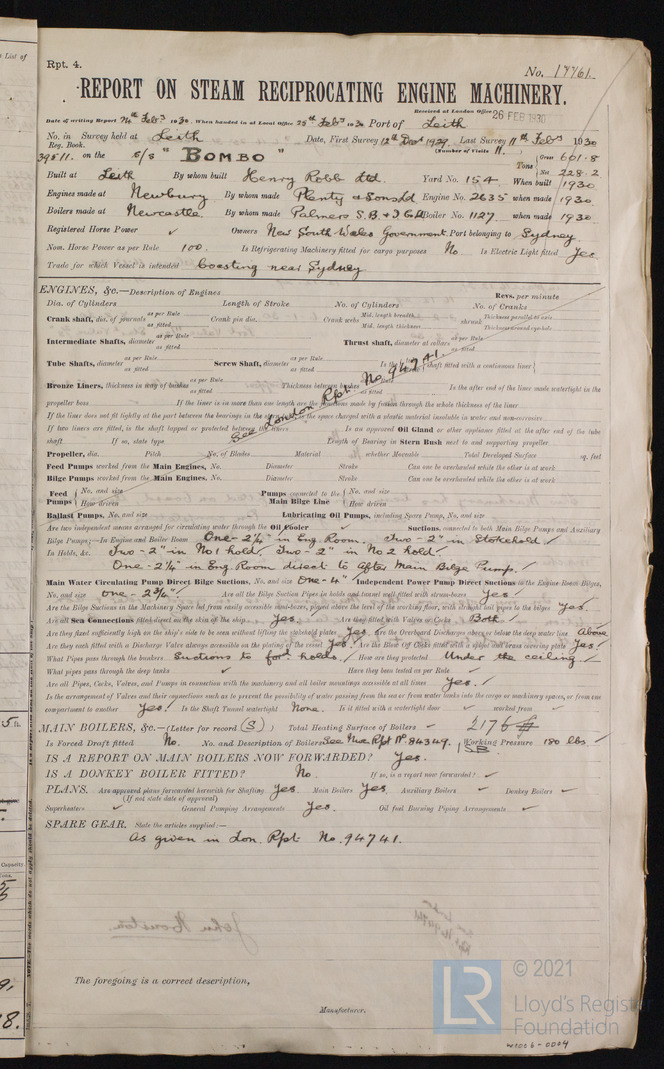 Rpt. 4.
No. 17761.
REPORT ON STEAM RECIPROCATING ENGINE MACHINERY.
Received at London Office 26 FEB 1930
Date of writing Report Feb 1930. When handed in at Local Office 25th Feb 1930 Port of Leith
No. in Survey held at Leith Date, First Survey 12th Dec 1929. Last Survey 11th Feb 1930
Reg. Book. (Number of Visits 11.
39511. on the S/S "BOMBO" Tons Gross 601.8 Net 228.2
Built at Leith By whom built Henry Robb Ltd. Yard No. 154. When built 1930.
Engines made at Newbury By whom made Plenty & Son Ltd Engine No. 2635 when made 1930.
Boilers made at Newcastle. By whom made Palmers S.B. & I. Co Ld Boiler No. 1127. when made 1930
Registered Horse Power ✓ Owners New South Wales Government. Port belonging to Sydney
Nom. Horse Power as per Rule 100. Is Refrigerating Machinery fitted for cargo purposes No Is Electric Light fitted Yes
Trade for which Vessel is intended Coasting near Sydney
ENGINES, &c.—Description of Engines Revs. per minute
Dia. of Cylinders Length of Stroke No. of Cylinders No. of Cranks
Crank shaft, dia. of journals as per Rule as fitted Crank pin dia. Crank webs Mid. length breadth Mid. length thickness shrunk Thickness parallel to axis Thickness around eye-hole
Intermediate Shafts, diameter as per Rule as fitted Thrust shaft, diameter at collars as per Rule as fitted
Tube Shafts, diameter as per Rule as fitted Screw Shaft, diameter as per Rule as fitted Is the shaft fitted with a continuous liner
Bronze Liners, thickness in way of bushes as per Rule as fitted Thickness between bushes Is the after end of the liner made watertight in the
See London Rpt No. 94741.
propeller boss If the liner is in more than one length are the junctions made by fusion through the whole thickness of the liner
If the liner does not fit tightly at the part between the bearings in the stern tube, is the space charged with a plastic material insoluble in water and non-corrosive
If two liners are fitted, is the shaft lapped or protected between the liners Is an approved Oil Gland or other appliance fitted at the after end of the tube
shaft If so, state type Length of Bearing in Stern Bush next to and supporting propeller
Propeller, dia. Pitch No. of Blades Material whether Moveable Total Developed Surface sq. feet
Feed Pumps worked from the Main Engines, No. Diameter Stroke Can one be overhauled while the other is at work
Bilge Pumps worked from the Main Engines, No. Diameter Stroke Can one be overhauled while the other is at work
Feed Pumps No. and size How driven Pumps connected to the Main Bilge Line No. and size How driven
Ballast Pumps, No. and size Lubricating Oil Pumps, including Spare Pump, No. and size
Are two independent means arranged for circulating water through the Oil Cooler ✓ Suctions, connected to both Main Bilge Pumps and Auxiliary
Bilge Pumps;—In Engine and Boiler Room One-2¼" in Eng. Room., Two-2" in Stokehold ✓
In Holds, &c. Two-2" in No1 hold. Two-2" in No2 hold ✓
One-2¼" in Eng. Room direct to After Main Bilge Pump. ✓
Main Water Circulating Pump Direct Bilge Suctions, No. and size One-4" Independent Power Pump Direct Suctions to the Engine Room Bilges,
No. and size one-2¾" ✓ Are all the Bilge Suction Pipes in holds and tunnel well fitted with strum-boxes Yes ✓
Are the Bilge Suctions in the Machinery Space led from easily accessible mud-boxes, placed above the level of the working floor, with straight tail pipes to the bilges Yes ✓
Are all Sea Connections fitted direct on the skin of the ship Yes. ✓ Are they fitted with Valves or Cocks Both. ✓
Are they fixed sufficiently high on the ship's side to be seen without lifting the stokehold plates Yes. Are the Overboard Discharges above or below the deep water line Above
Are they each fitted with a Discharge Valve always accessible on the plating of the vessel Yes ✓ Are the Blow Off Cocks fitted with a spigot and brass covering plate Yes ✓
What Pipes pass through the bunkers Suctions to ford holds. ✓ How are they protected Under the ceiling. ✓
What pipes pass through the deep tanks ✓ Have they been tested as per Rule ✓
Are all Pipes, Cocks, Valves, and Pumps in connection with the machinery and all boiler mountings accessible at all times Yes. ✓
Is the arrangement of Valves and their connections such as to prevent the possibility of water passing from the sea or from water tanks into the cargo or machinery spaces, or from one
compartment to another Yes ✓ Is the Shaft Tunnel watertight None. Is it fitted with a watertight door ✓ worked from ✓
MAIN BOILERS, &c.—(Letter for record (S) ) Total Heating Surface of Boilers ✓ 2176
Is Forced Draft fitted No. No. and Description of Boilers See Nwc Rpt No 84349. 1SB Working Pressure 180 lbs ✓
IS A REPORT ON MAIN BOILERS NOW FORWARDED? Yes.
IS A DONKEY BOILER FITTED? No. If so, is a report now forwarded? ✓
PLANS. Are approved plans forwarded herewith for Shafting Yes Main Boilers Yes Auxiliary Boilers ✓ Donkey Boilers ✓
(If not state date of approval)
Superheaters ✓ General Pumping Arrangements Yes. Oil fuel Burning Piping Arrangements ✓
SPARE GEAR. State the articles supplied:—
As given in Lon. Rpt. No. 94741.
The foregoing is a correct description,
Manufacturer.
LR © 2021
Lloyd's Register
Foundation
W1006-0004